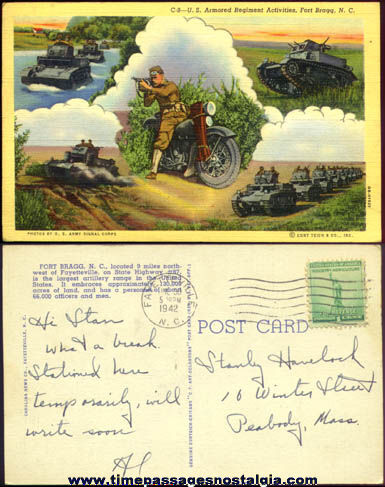 C-3—U. S. Armored Regiment Activities, Fort Bragg, N. C.
PHOTOS BY U. S. ARMY SIGNAL CORPS
© CURT TEICH & CO., INC.
FORT BRAGG, N. C., located 9 miles north-
west of Fayetteville, on State Highway
is the largest artillery range in the United
States. It embraces approximately 130,000
acres of land, and has a personnel of
66,000 officers and men.
5 30 PM
1942
N. C.
INDUSTRY AGRICULTURE
POST CARD
CAROLINA NEWS CO., FAYETTEVILLE, N. C.
Hi Stan
what a break
Stationed here
temporarily, will
write soon
Al
Stanley Havelock
10 Winter Street
Peabody, Mass.
www.timepassagesnostalgia.com